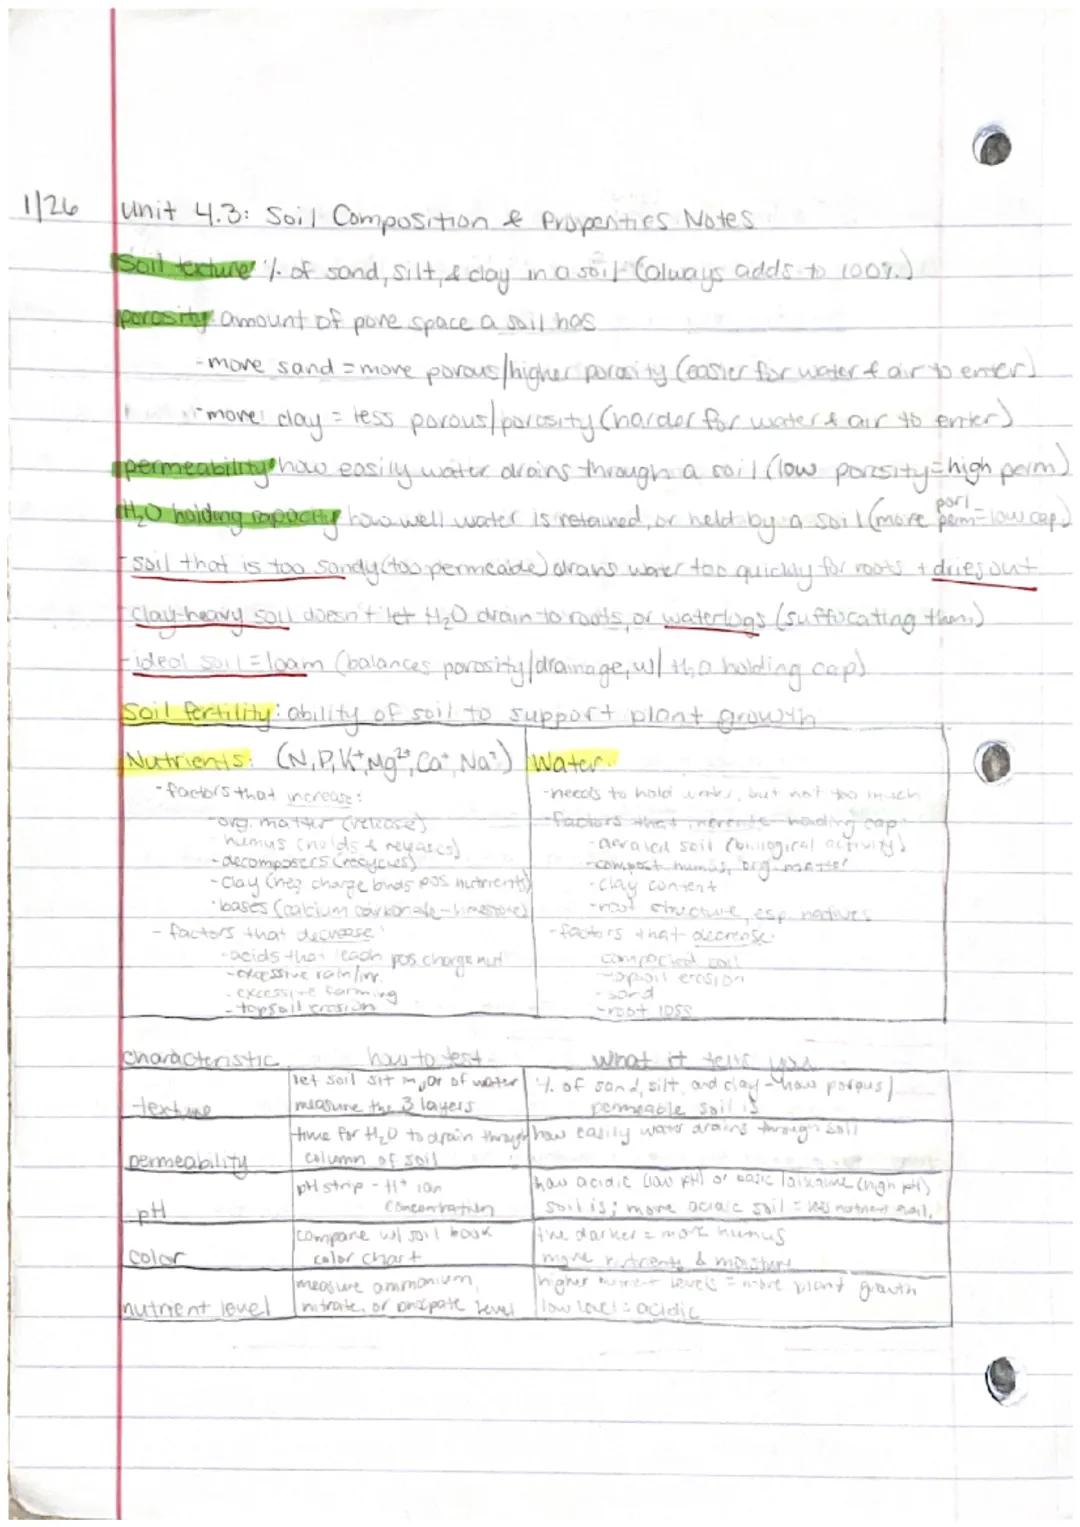 1/26
Unit 4.3: Soil Composition & Properties Notes
Soil texture: % of sand, silt, & clay in a soil (always adds to 100%)
porosity: amount of pore space a soil has
-more sand = more porous/higher porosity (easier for water & air to enter)
-more clay = less porous/porosity (harder for water & air to enter)
permeability: how easily water drains through a soil (low porosity=high perm)
por/
H₂O holding capacity: how well water is retained, or held by a soil (more perm=low cap)
-soil that is too sandy (too permeable) drains water too quickly for roots + dries out
-clay-heavy soil doesn't let H₂O drain to roots, or waterlogs (suffocating them)
-ideal soil = loam (balances porosity/drainage, w/ H₂O holding cap)
Soil fertility: ability of soil to support plant growth
Nutrients: (N, P, K⁺, Mg²⁺, Ca⁺, Na⁺)
-factors that increase:
-org. matter (release)
-humus (holds & releases)
-decomposers (recycles)
-clay (neg charge binds pos nutrients)
-bases (calcium carbonate-limestone)
-factors that decrease:
-acids that leach pos charge nut
-excessive rain/irr.
-excessive farming
-topsoil erosion
Water:
-needs to hold water, but not too much
-factors that increase holding cap:
-aerated soil (biological activity)
-compost, humus, org. matter
-clay content
-root structure, esp. natives
-factors that decrease:
compacted soil
-topsoil erosion
-sand
-root loss
characteristic how to test what it tells you
texture
let soil sit in jar of water
measure the 3 layers
% of sand, silt, and clay - how porous/
permeable soil is
permeability
time for H₂O to drain through
column of soil
how easily water drains through soil
pH
pH strip - H⁺ ion
concentration
how acidic (low pH) or basic/alkaline (high pH)
soil is; more acidic soil = less nutrient avail.
color
compare w/ soil book
color chart
the darker = more humus
more nutrients & moisture
nutrient level
measure ammonium,
nitrate, or level
higher nutrient levels = more plant growth
low level = acidic